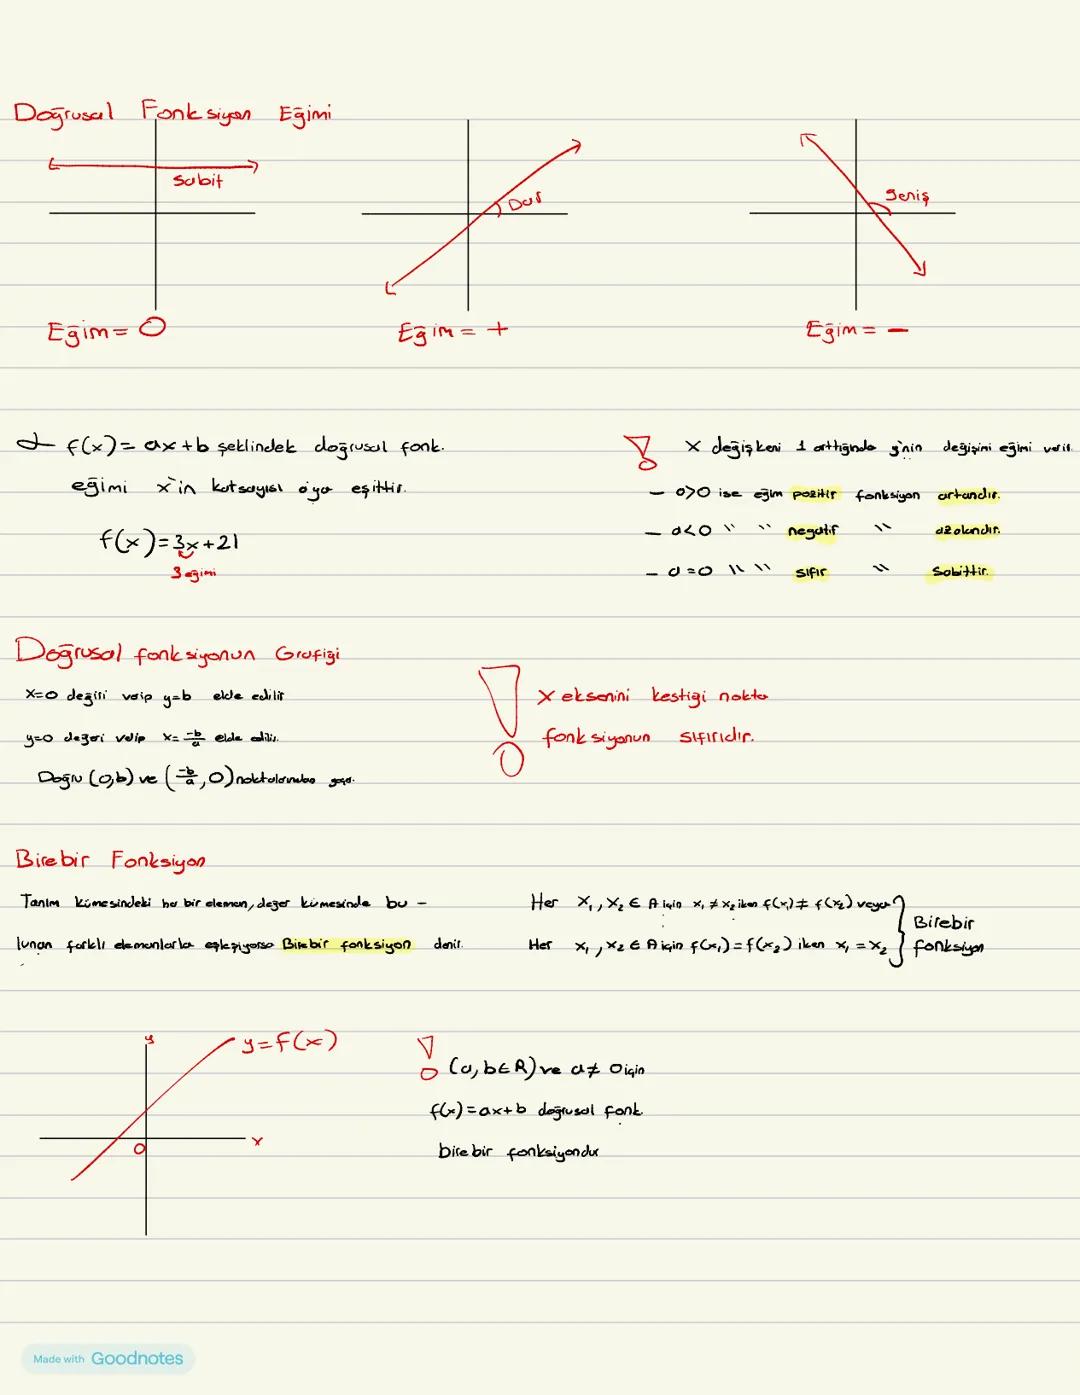 Doğrusal Fonksiyon Eğimi
Sabit
Dar
geniş
Eğim = 0
Eğim = +
Eğim = -
f(x) = ax+b şeklindek doğrusal fonk.
eğimi x'in katsayısı a'ya eşittir.
f(x) = 3x+21
3 eğimi
x değişkeni 1 arttığında y'nin değişimi eğimi verir.
- a>0 ise eğim pozitif fonksiyon artandır.
- a<0 " " negatif " azalandır.
- a=0 " " sıfır " Sabittir.
Doğrusal fonksiyonun Grafiği
x=0 değeri verip y=b elde edilir
y=0 değeri verip x= -b/a elde edilir.
Doğru (0,b) ve (-b/a, 0) noktalarından geçer.
X eksenini kestiği nokta
fonksiyonun sıfırıdır.
Birebir Fonksiyon
Tanım kümesindeki her bir eleman, değer kümesinde bu -
lunan farklı elemanlarla eşleşiyorsa Birebir fonksiyon denir.
Her x₁, x₂ ∈ A için x₁ ≠ x₂ iken f(x₁) ≠ f(x₂) veya
Her x₁, x₂ ∈ A için f(x₁) = f(x₂) iken x₁ = x₂
Birebir
fonksiyon
y
y=f(x)
0
x
(a, b ∈ R) ve a ≠ 0 için
f(x) = ax+b doğrusal fonk.
birebir fonksiyondur
Made with Goodnotes